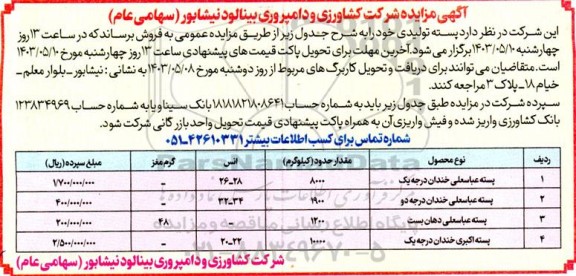 آگهی مزایده شرکت کشاورزی و دامپروری بینالود نیشابور (سهامی عام)
این شرکت در نظر دارد پسته تولیدی خود را به شرح جدول زیر از طریق مزایده عمومی به فروش برساند که در ساعت ۱۳ روز
چهارشنبه ۱۴۰۳/۰۵/۱۰ برگزار می شود. آخرین مهلت برای تحویل پاکت قیمت های پیشنهادی ساعت ۱۳ روز چهارشنبه مورخ ۱۴۰۳/۰۵/۱۰
است. متقاضیان می توانند برای دریافت و تحویل کاربرگ های مربوط از روز دوشنبه مورخ ۱۴۰۳/۰۵/۰۸ به نشانی : نیشابور - بلوار معلم -
خیام ۱۸ - پلاک ۳ مراجعه کنند.
سپرده شرکت در مزایده طبق جدول زیر باید به شماره حساب ۱۸۱۸۱۸۲۱۰۸۰۸۶۴۱ بانک سینا و یا به شماره حساب ۱۲۳۸۳۴۹۶۹
بانک کشاورزی واریز شده و فیش واریزی آن به همراه پاکت پیشنهادی قیمت تحویل واحد بازرگانی شرکت شود.
شماره تماس برای کسب اطلاعات بیشتر ۴۲۶۱۰۳۳۱-۰۵۱
ردیف نوع محصول مقدار حدود (کیلوگرم) انس گرم مغز مبلغ سپرده (ریال)
۱ پسته عباسعلی خندان درجه یک ۸۰۰۰ ۲۸-۲۶ - ۱/۷۰۰/۰۰۰/۰۰۰
۲ پسته عباسعلی خندان درجه دو ۱۹۰۰ ۳۴-۳۲ - ۴۰۰/۰۰۰/۰۰۰
۳ پسته عباسعلی دهان بست ۱۲۰۰ - ۴۸ ۲۰۰/۰۰۰/۰۰۰
۴ پسته اکبری خندان درجه یک ۱۰۰۰۰ ۲۲-۲۰ - ۲/۵۰۰/۰۰۰/۰۰۰
شرکت کشاورزی و دامپروری بینالود نیشابور (سهامی عام)